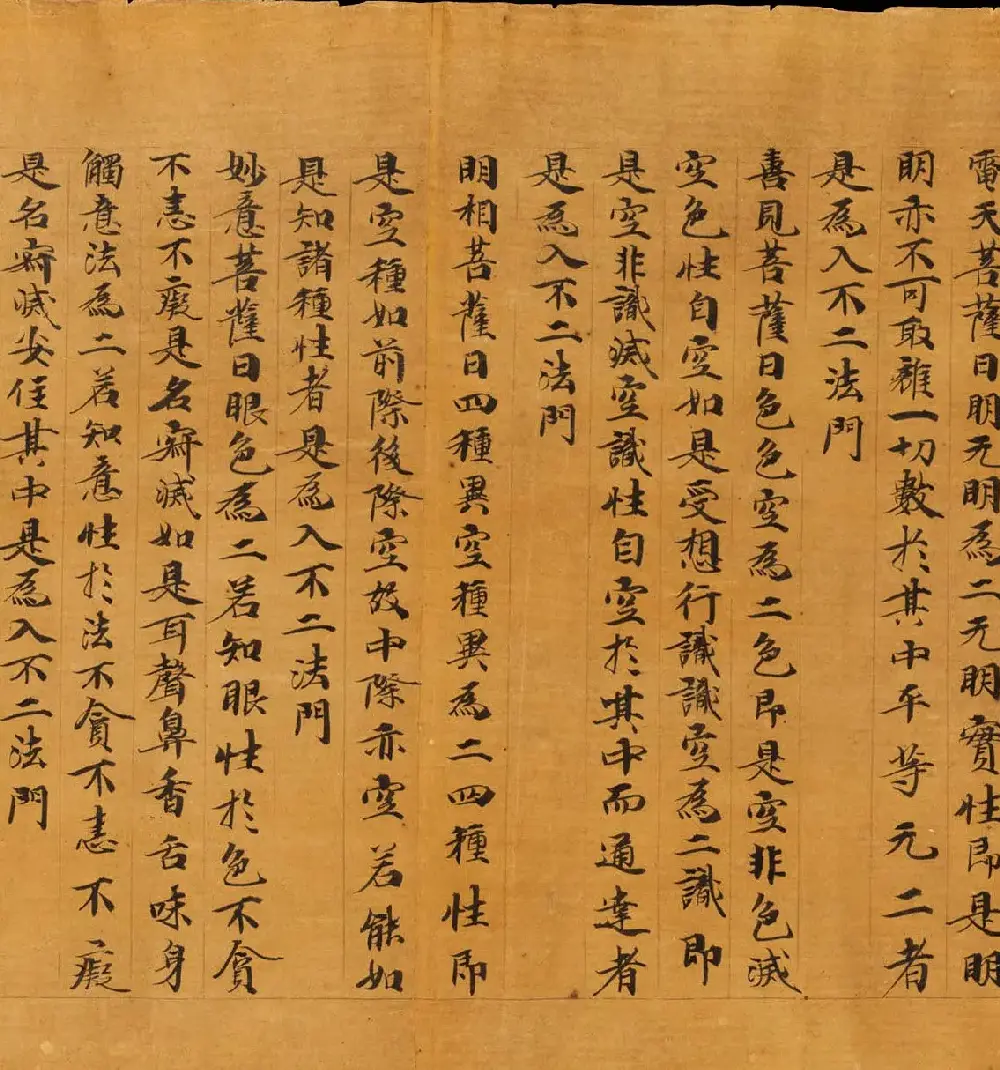 雷天菩薩曰明无明為二无明實性即是明
明亦不可取離一切數於其中平等无二者
是為入不二法門
喜見菩薩曰色色空為二色即是空非色滅
空色性自空如是受想行識識空為二識即
是空非識滅空識性自空於其中而通達者
是為入不二法門
明相菩薩曰四種異空種異為二四種性即
是空種如前際後際空故中際亦空若能如
是知諸種性者是為入不二法門
妙意菩薩曰眼色為二若知眼性於色不貪
不恚不癡是名寂滅如是耳聲鼻香舌味身
觸意法為二若知意性於法不貪不恚不癡
是名寂滅安住其中是為入不二法門